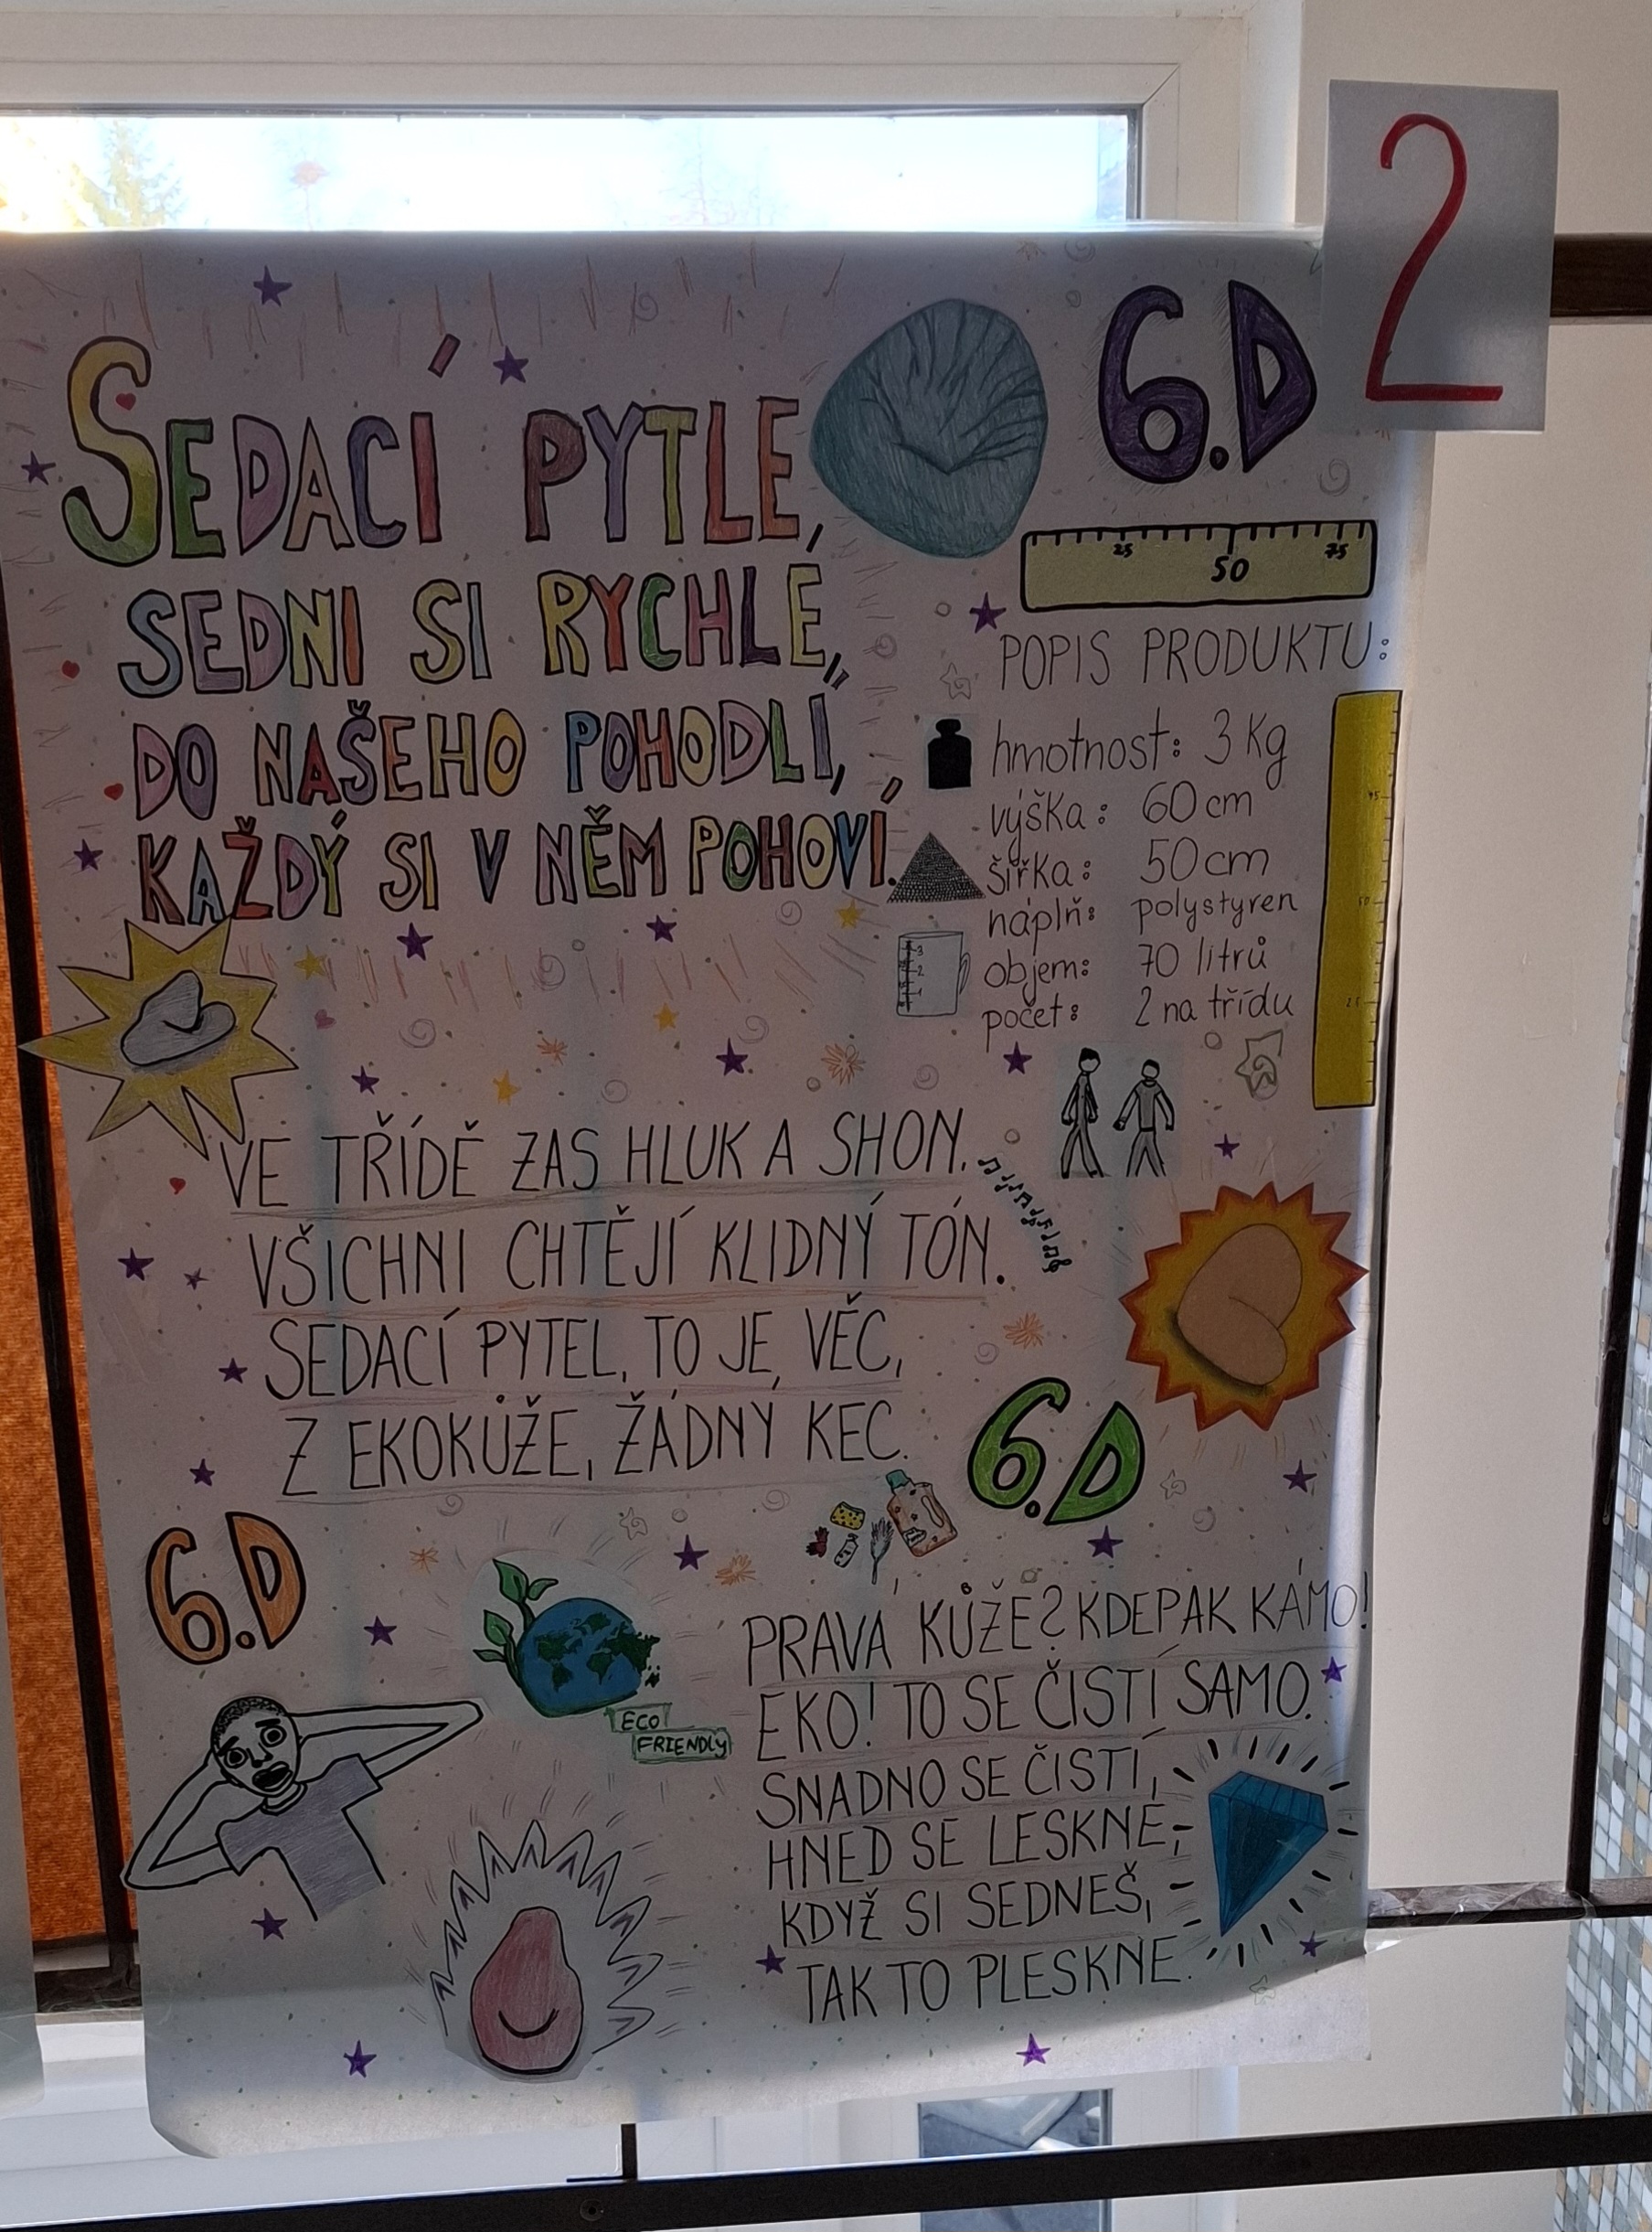 2
6.D
SEDACÍ PYTLE,
SEDNI SI RYCHLE,
DO NAŠEHO POHODLÍ,
KAŽDÝ SI V NĚM POHOVÍ.
25 50 75
POPIS PRODUKTU:
hmotnost: 3 Kg
výška: 60 cm
šířka: 50 cm
náplň: polystyren
objem: 70 litrů
počet: 2 na třídu
3
2
1
VE TŘÍDĚ ZAS HLUK A SHON.
VŠICHNI CHTĚJÍ KLIDNÝ TÓN.
SEDACÍ PYTEL, TO JE, VĚC,
Z EKOKŮŽE, ŽÁDNÝ KEC.
6.D
6.D
ECO
FRIENDLY
PRAVÁ KŮŽE? KDEPAK KÁMO!
EKO! TO SE ČISTÍ SAMO.
SNADNO SE ČISTÍ,
HNED SE LESKNE,
KDYŽ SI SEDNEŠ,
TAK TO PLESKNE.